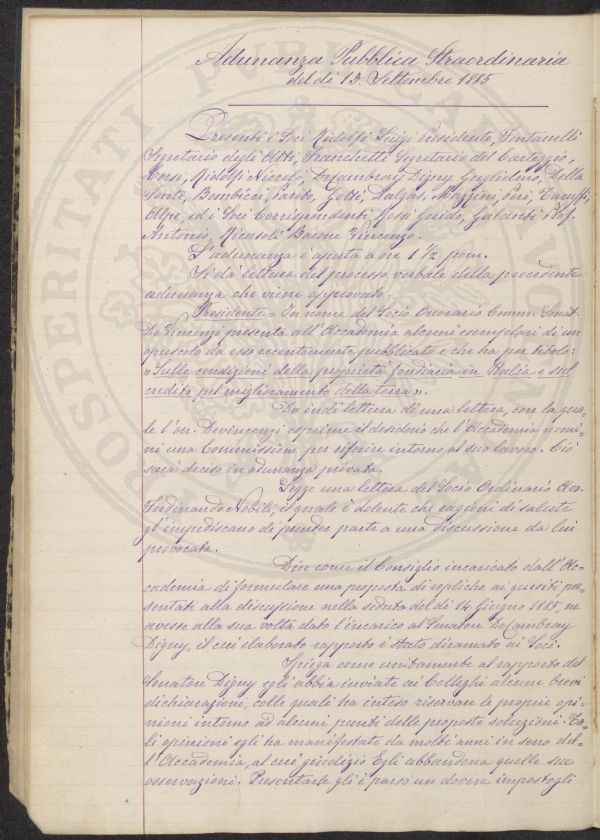 Adunanza Pubblica Straordinaria
del dì 13. Settembre 1885
Presenti i Soci Ridolfi Luigi Presidente, Fontanelli
Segretario degli Atti, Franchetti Segretario del Carteggio,
Ridolfi Niccolò, Decambray Digny Guglielmo, Della
Fonte, Bombicci, Dalgas, Mazzini, Peri,
Alpe, ed i Soci Corrispondenti Rossi Guido, Prof.
Antonio, Ricasoli Barone Vincenzo.
L'adunanza è aperta a ore 1 1/2 pom.
Si dà lettura del processo verbale della precedente
adunanza che viene approvato.
Presidente = In nome del Socio Onorario Comm. Senat.
De Vincenzi presenta all'Accademia alcuni esemplari di un
opuscolo da esso recentemente pubblicato e che ha per titolo:
"Sulle condizioni della proprietà fondiaria in Italia e sul
credito pel miglioramento della terra".
Dà indi lettura di una lettera, con la qua-
le l'on. Devincenzi esprime il desiderio che l'Accademia nomi-
ni una Commissione per riferire intorno al suo lavoro. Ciò
sarà deciso in adunanza privata.
Legge una lettera del Socio Ordinario Avv.
Ferdinando Nobili, il quale è dolente che ragioni di salute
gl'impediscano di prender parte a una discussione da lui
provocata.
Dice come il Consiglio incaricato dall'Ac-
cademia di formulare una proposta di repliche ai quesiti pre-
sentati alla discussione nella seduta del dì 14 Giugno 1885, ne
avesse alla sua volta dato l'incarico al Senatore DeCambray
Digny, il cui elaborato rapporto è stato diramato ai Soci.
Spiega come unitamente al rapporto del
Senatore Digny egli abbia inviate ai Colleghi alcune brevi
dichiarazioni, colle quali ha inteso riservare le proprie opi-
nioni intorno ad alcuni punti delle proposte soluzioni. Ta-
li opinioni egli ha manifestate da molti anni in seno del-
l'Accademia, al cui giudizio Egli abbandona quelle sue
osservazioni. Presentarle gli è parso un dovere impostogli